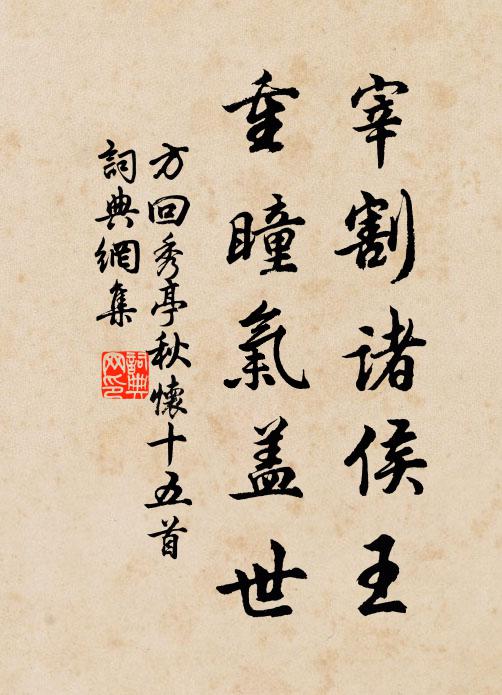 宰割諸侯王
重瞳氣蓋世
方回秀亭秋懷十五首
詞典網集
詞典網印